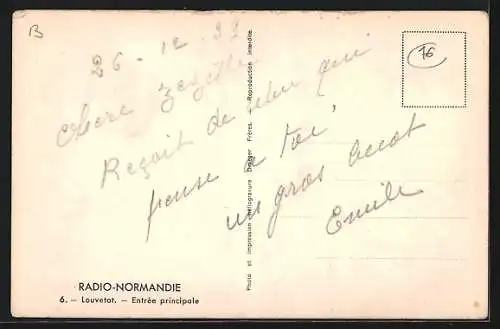 B
26 - 12 - 39
Chere
Reçoit de celui qui
pense a toi
un gros becot
Emile
76
Photo et impression héliogravure Draeger Frères. — Reproduction interdite.
RADIO-NORMANDIE
6. — Louvetot. — Entrée principale